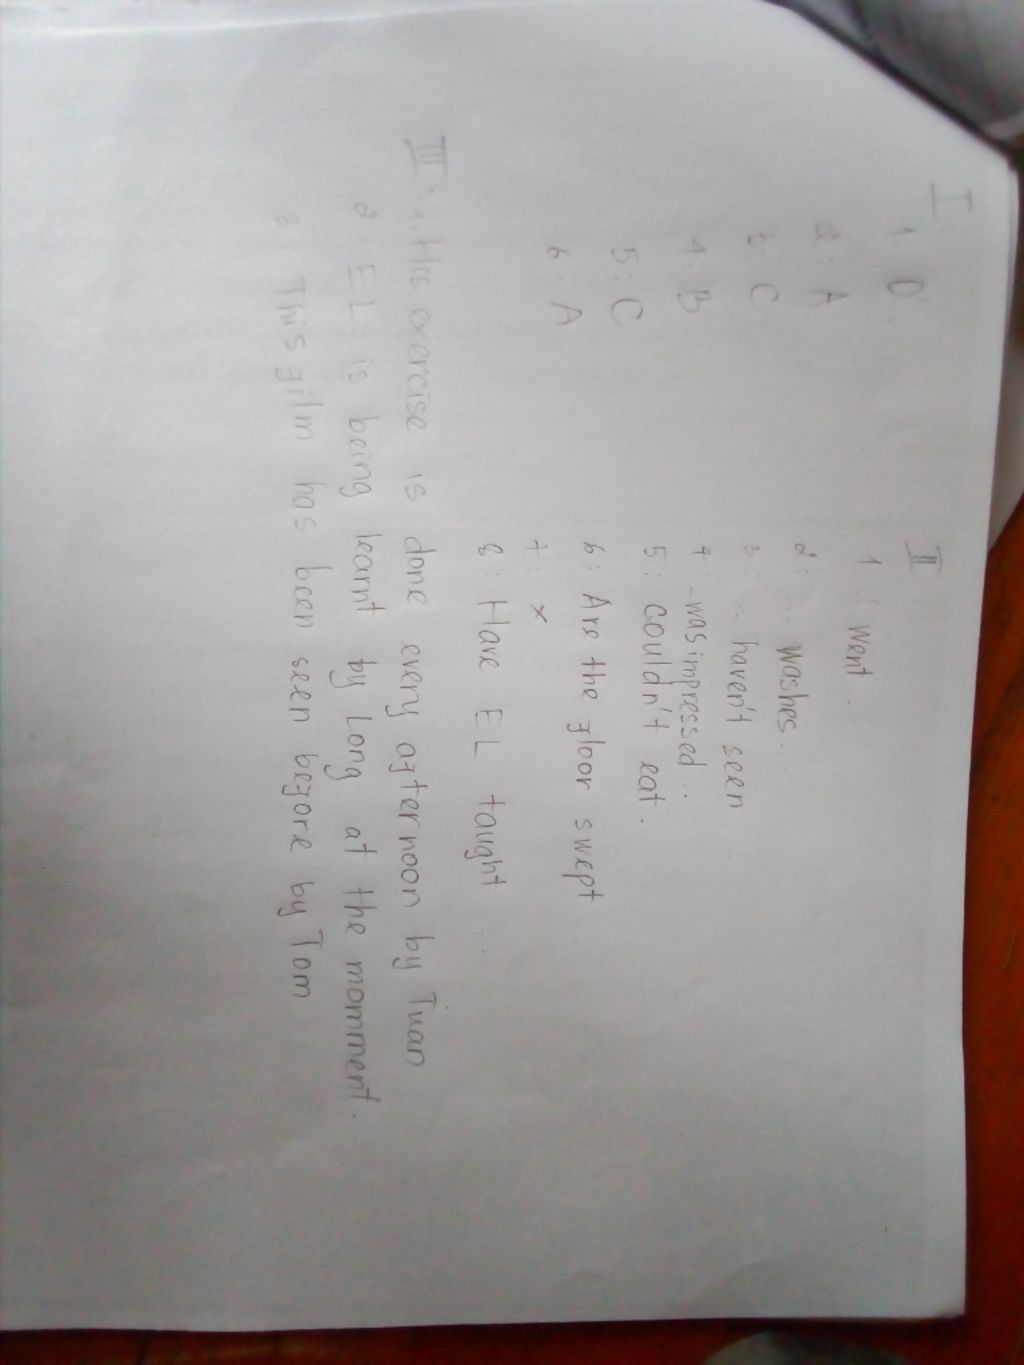 I
1 D
2: A
3: C
4: B
5: C
6: A
II
1: Went ..
2: ... washes..
3 ... haven't seen
4 ..was impressed...
5: couldn't eat.
6: Are the floor swept
7: x
8: Have EL taught ...
III: 1. His exercise is done every afternoon by Tuan
2 EL is being learnt by Long at the momment.
3, This film has been seen before by Tom